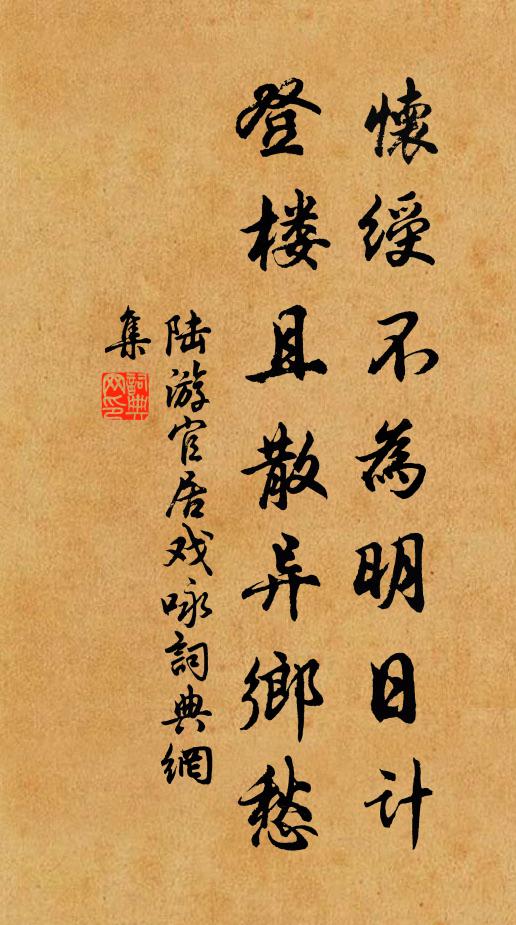 懷綬不為明日计
登楼且散异鄉愁
陆游官居戏咏詞典網
集
詞典網印